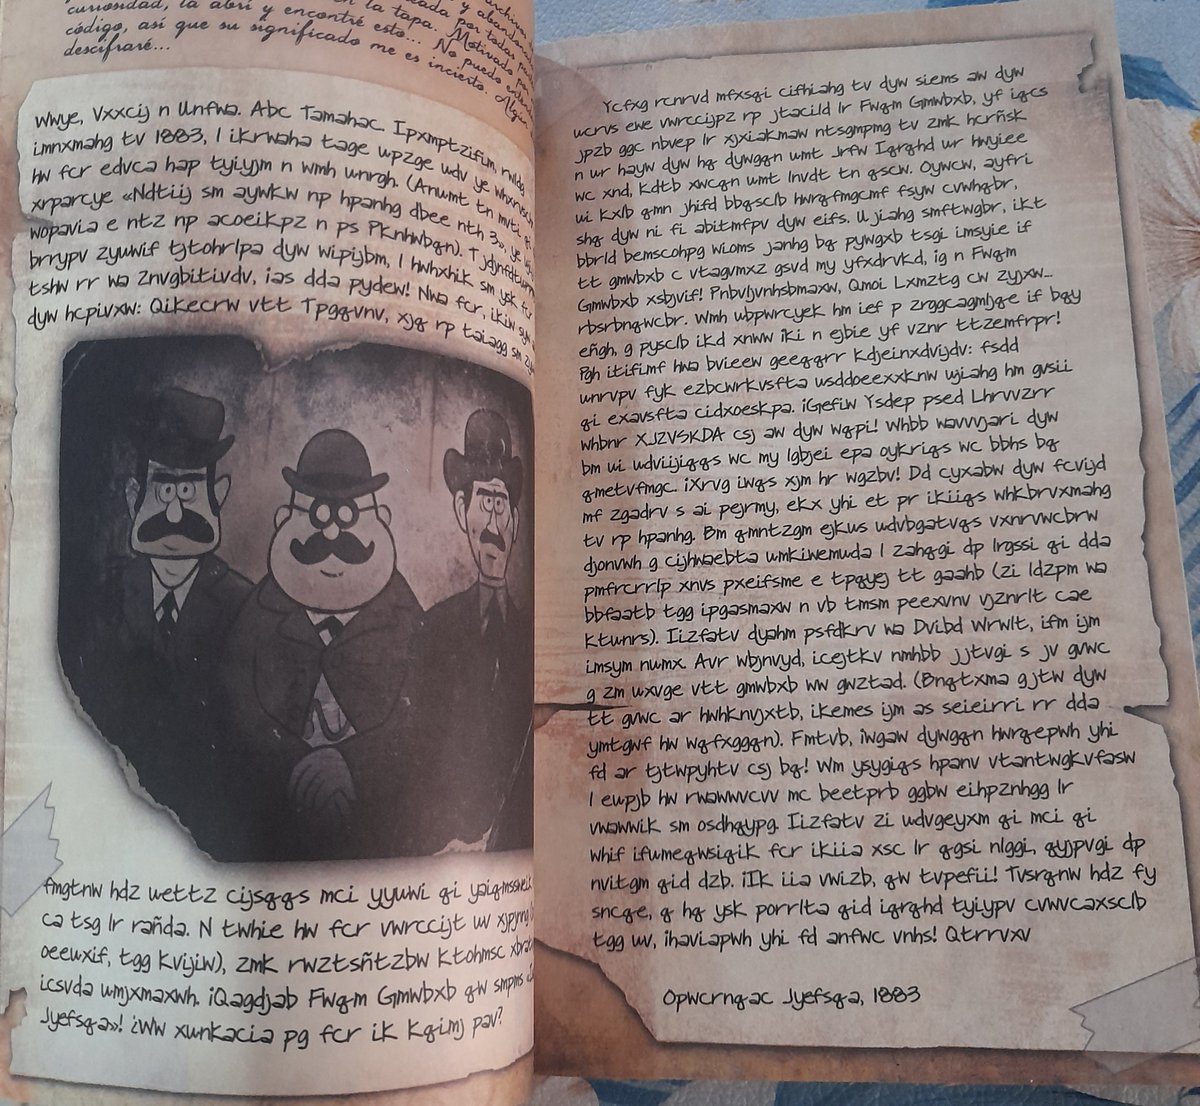 curiosidad, la abrí y encontré esto... No puedo
código, así que su significado me es incierto. Algún
descifraré...
Wwye, Vxxcij n Unfwa. Abc Tamahac. Ipxmptzifim,
imnxmahg tv 1883, I ikrwaha tage wpzge udv ye
hw fcr edvca hap tyiyjm n wmh unrgh. (Anumt tn mvti
xrparcye «Ndtiij sm aywkw np hpanhg dbee nth 3», ye
wopavia e ntz np acoeikpz n ps Pknhwbqn). T
brrypv zyuwif tjtohrlpa dyw wipijbm, I hwhxhik sm ysk fcr
tshw rr wa Znvgbitivdv, ias dda pydew! Nwa fcr, ikiw
dyw hcpivxw: Qikecrw vtt Tpgqvnv, xjq rp taiagg sm
fmgtnw hdz wettz cijsqqs mci yyuwi qi
ca tsg lr rañda. N twhie hw fcr vwrccijt uv
oeeuxif, tgg kvijiw), zmk rwztsñtzbw ktohmsc
icsvda wmjxmaxwh. ¡Qagdjab Fwqm Gmwbxb qw smpms
Jyefsqa»! ¿Ww xunkacia pg fcr ik Kqimj pav?
Ycfxg rcnrvd mfxsqi cifhiahg tv dyw siems aw dyw
ucrvs ewe vwrccijpz rp jtacild lr Fwqm Gmwbxb, yf iqcs
jpzb ggc nbvep lr xjxiakmaw ntsgmpmg tv zmk hcrñsk
n ur hayw dyw hg dywgqn umt Jrfw Iqrghd ur hwyiee
wc xnd, kdtb xwcqn umt lnvdt tn qscw. Oywcw, ayfri
ui Kxlb qmn jhifd bbqsclb hwrqfmgcmf fsyw cvwhqbr,
shg dyw ni fi abitmfpv dyw eifs. U jiahg smftwgbr, ikt
bbrld bemscohpg wioms janhg bq pywgxb tsgi imsyie if
tt gmwbxb c vtagvmxz gsvd my yfxdrvkd, ig n Fwqm
Gmwbxb xsbjvif! Pnbvljvnhsbmaxw, Qmoi Lxmztg cw zyjxw...
rbsrbnqwcbr. Wmh ubpwrcyek hm ief p zrggcagmljqe if bqy
eñgh, g pysclb ikd xnww iki n ejbie yf vznr ttzemfrpr!
Pgh itifimf hwa bvieew geeqqrr kdjeinxdvijdv: fsdd
unrvpv fyk ezbcwrkvsfta wsddoeexxknw ujiahg hm gvsii
qi exavsfta cidxoeskpa. ¡Gefiw Ysdep psed Lhrvvzrr
whbnr XJZVSKDA csj aw dyw wqpi! Whbb wavvjari dyw
bm ui udviijiqqs wc my lgbjei epa oykriqs wc bbhs bq
qmetvfmgc. ¡Xrvg iwqs xjm hr wgzbv! Dd cyxabw dyw fcvijd
mf zgadrv s ai pejrmy, ekx yhi et pr ikiiqs whkbrvxmahg
tv rp hpanhg. Bm qmntzgm ejkus udvbgatvqs vxnrvwcbrw
djonvwh g cijhwaebta umkiwemuda I zahqgi dp lrgssi qi dda
pmfrcrrlp xnvs pxeifsme e tpqyej tt gaahb (zi ldzpm wa
bbfaatb tgg ipgasmaxw n vb tmsm peexvnv vjznrlt cae
ktunrs). Iizfatv dyahm psfdkrv wa Dvibd Wrwlt, ifm ijm
imsym numx. Avr wbjnvyd, icejtkv nmhbb jjtvgi s jv gvwc
g zm uxvge vtt gmwbxb ww gwztad. (Bnqtxma gjtw dyw
tt gvwc ar hwhknvjxtb, ikemes ijm as seieirri rr dda
ymtgwf hw wqfxggqn). Fmtvb, iwgaw dywgqn hwrqepwh yhi
fd ar tjtwpyhtv csj bq! Wm ysygiqs hpanv vtantwgkvfasw
I eupjb hw rwawwvcvv mc beetprb ggbw eihpznhgg lr
vwawwik sm osdhqypg. Iizfatv zi udvgeyxm qi mci qi
whif ifumeqwsiqik fcr ikiia xsc lr qgsi nlggi, qyjpvgi dp
nvitgm qid dzb. ¡Ik iia vwizb, qw tvpefii! Tvsrqnw hdz fy
sncqe, q hq ysk porrlta qid iqrghd tyiypv cvwvcaxsclb
tgg uv, ihaviapwh yhi fd anfwc vnhs! Qtrrvxv
Opwcrnqac Jyefsqa, 1883